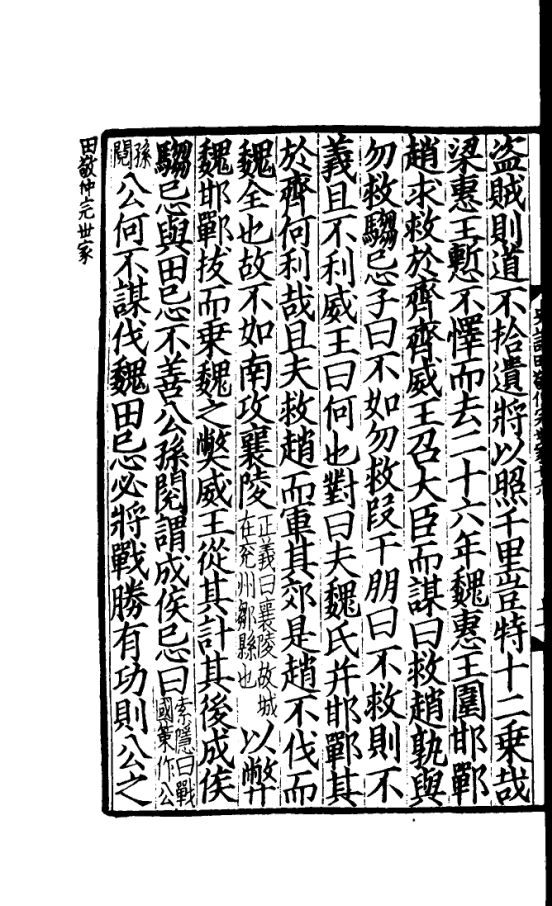 盜賊則道不拾遺將以照千里豈特十二乗哉
梁惠王慙不懌而去二十六年魏惠王圍邯鄲
趙求救於齊齊威王召大臣而謀曰救趙孰與
勿救騶忌子曰不如勿救段干朋曰不救則不
義且不利威王曰何也對曰夫魏氏并邯鄲其
於齊何利哉且夫救趙而軍其郊是趙不伐而
魏全也故不如南攻襄陵正義曰襄陵故城在兖州鄒縣也以弊
魏邯鄲拔而乗魏之獘威王從其計其後成侯
騶忌與田忌不善公孫閱謂成侯忌曰索隱曰戰國策作公
孫閱公何不謀伐魏田忌必將戰勝有功則公之
田敬仲完世家